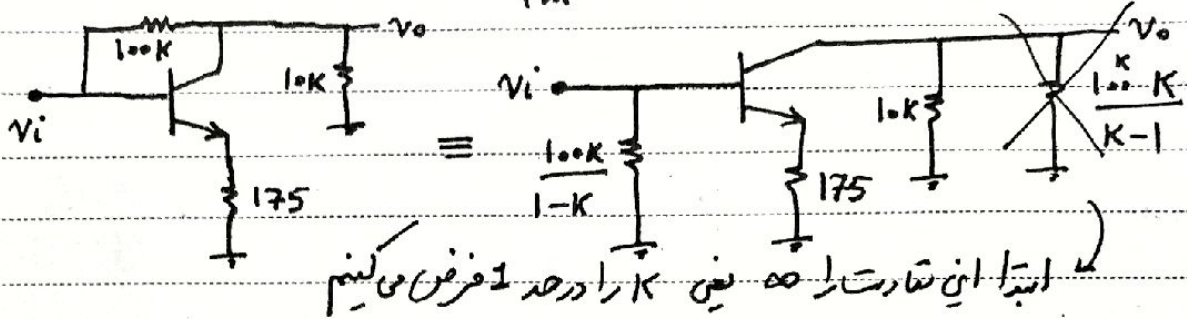 100K
vo
10K
vi
175
≡
vi
100K
1-K
175
10K
vo
100K K
K-1
ابتدا این مقاومت را ∞ یعنی K را در حد 1 فرض می کنیم